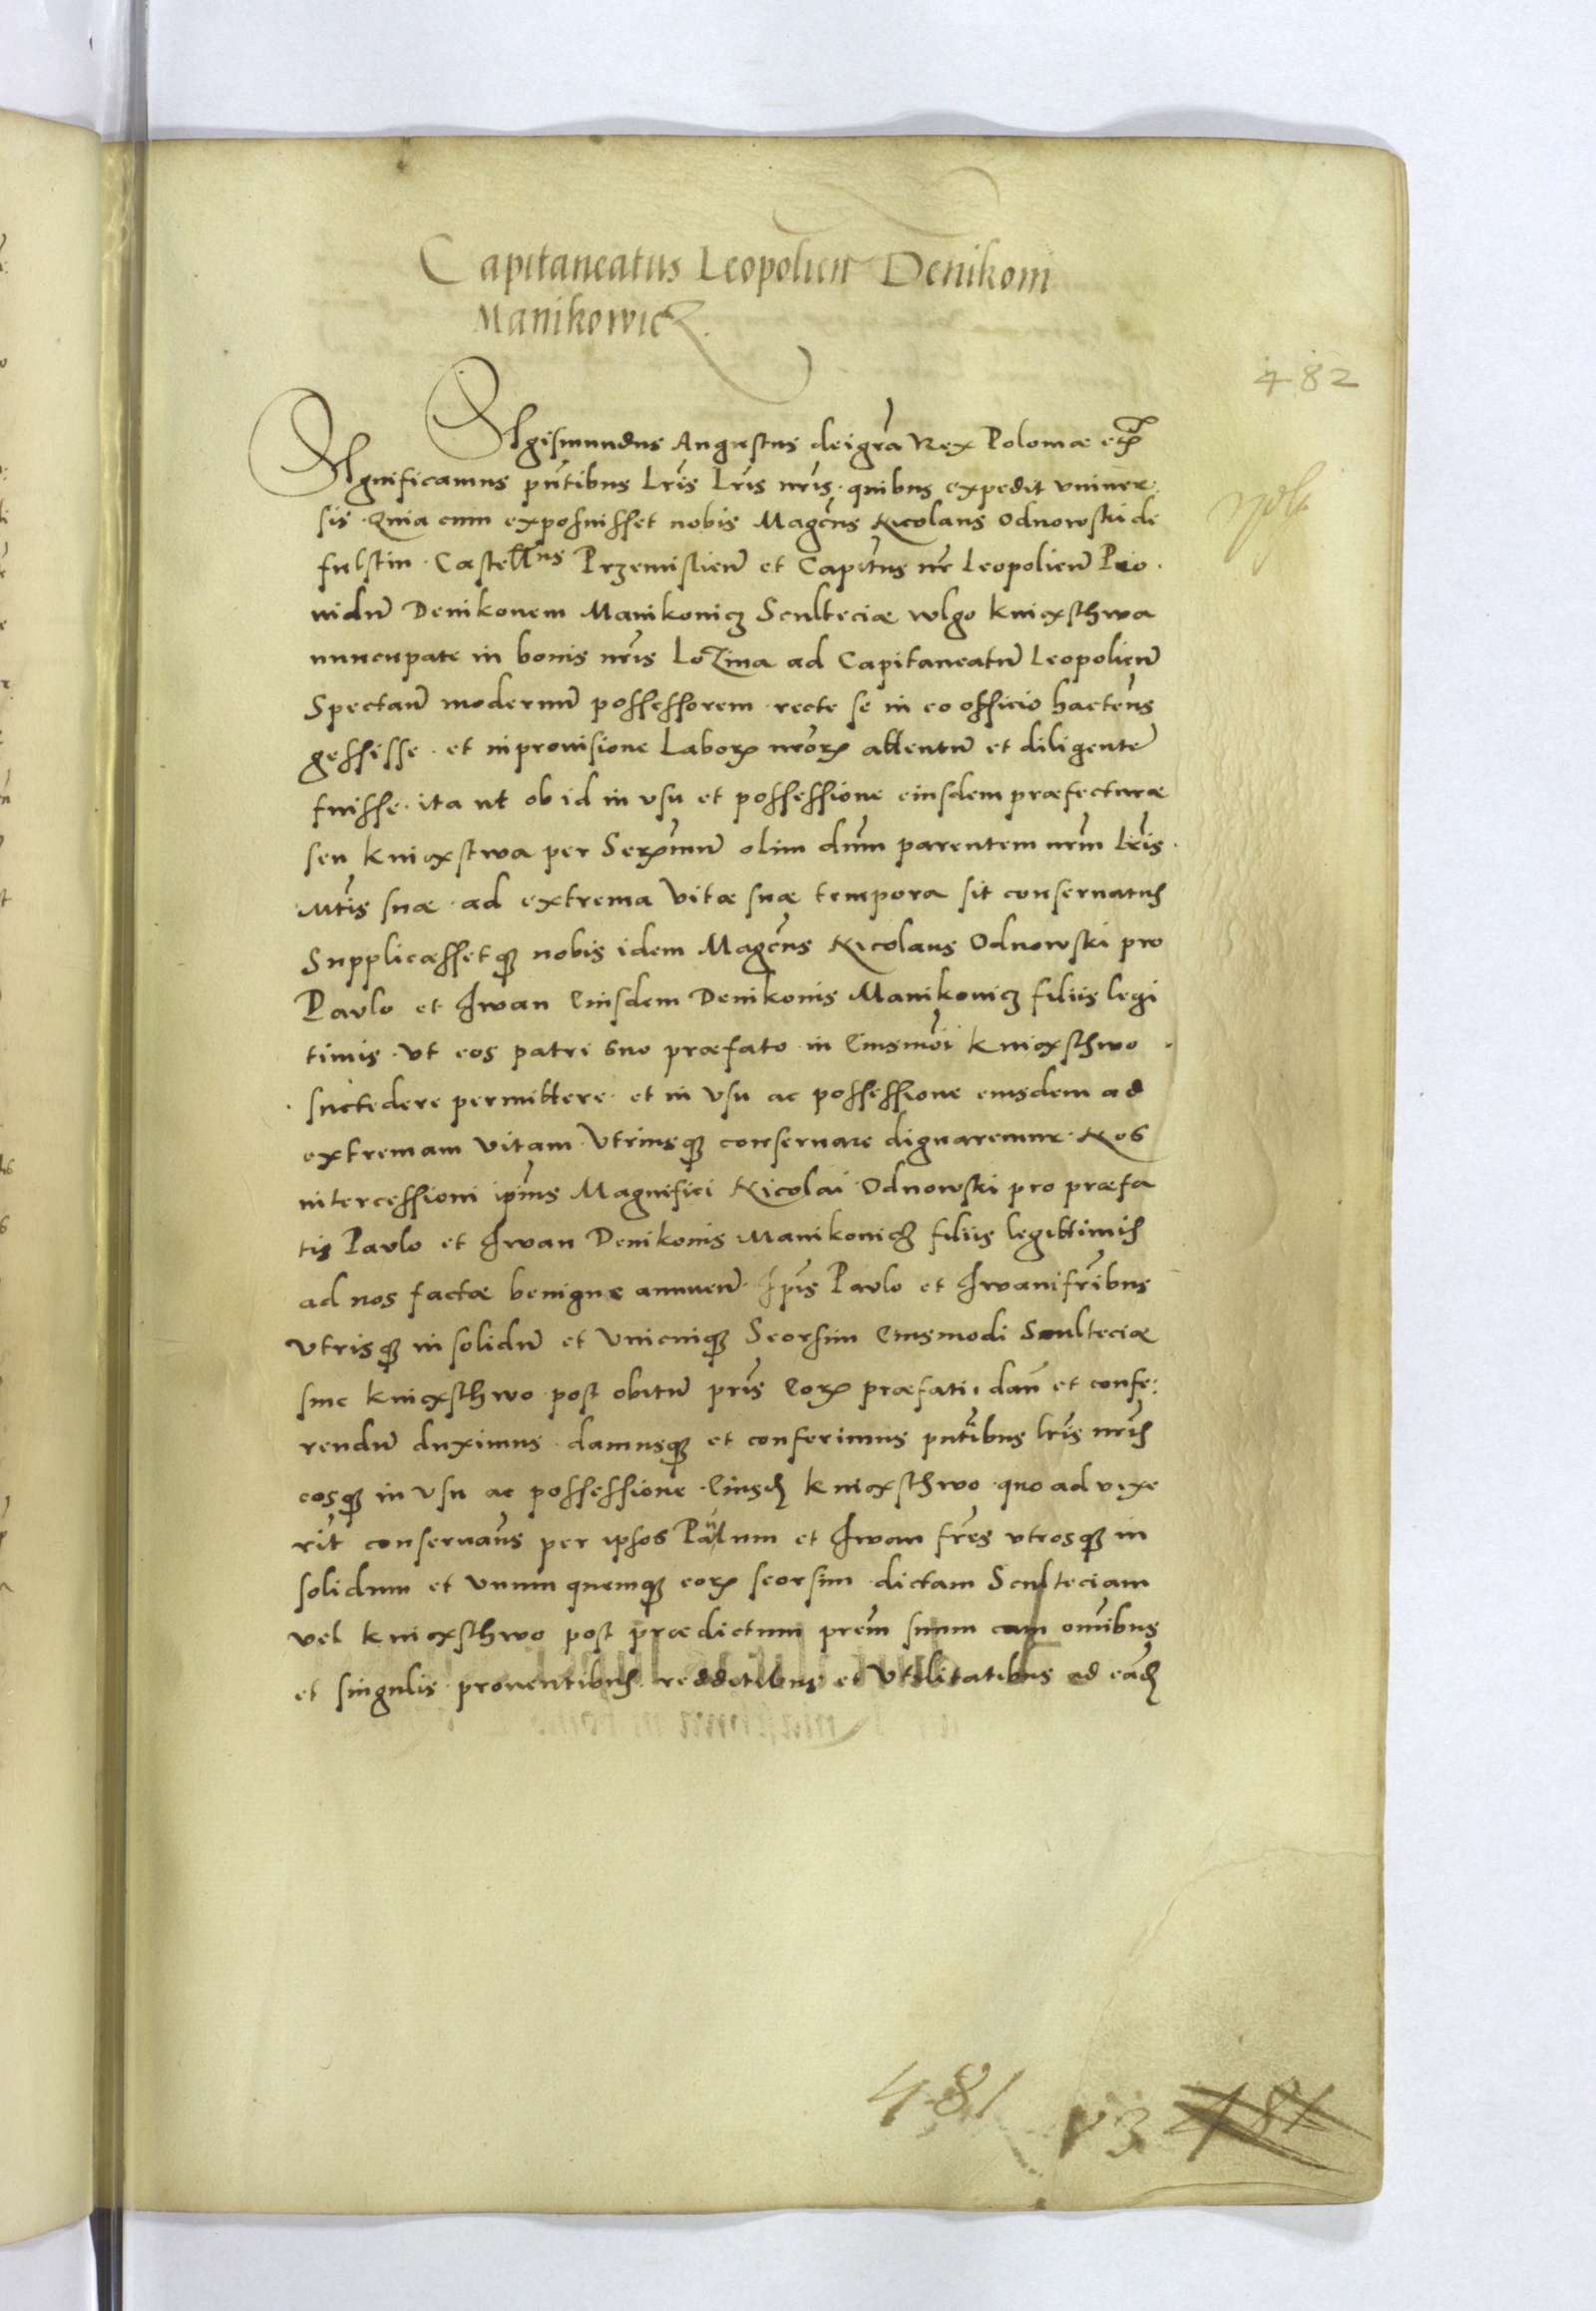 Capitaneatus Leopolien̄ Denikoni
Manikowicz.
482
Sigismundus Augustus dei gr̄a Rex Poloniæ etc̄
Significamus pn̄tibus Lr̄is Lr̄is nr̄is. quibus expedit vniuer:
sis. Quia cum exposuisset nobis Magc̄us Nicolaus Odnowski de
fulstin. Castell̄nus Przemislien̄ et Capit̄us nr̄ Leopolien̄ Pro.
uidū Denikonem Manikouicz Sculteciæ vlgo knicxsthwa
nuncupate in bonis nr̄is Lozina ad Capitaneatū Leopolien̄
Spectan̄ modernū possessorem recte se in eo officio hacten̄s
gessisse. et in prouisione Laborꝝ nr̄orꝝ attentū et diligentē
fuisse. ita ut ob id in vsu et possessione eiusdem præfecturæ
seu knicxstwa per Serꝰmū olim dn̄m parentem nr̄m lr̄is.
Mt̄is suæ ad extrema Vitæ suæ tempora sit conseruatus
Supplicassetqꝫ nobis idem Magc̄us Nicolaus Odnowski pro
Pavlo et Iwan Eiusdem Denikonis Manikouicz filiis legi
timis. Vt eos patri suo præfato in Eiusmōi knicxsthwo
succedere permittere. et in vsu ac possessione eiusdem ad
extremam vitam Vtriusqꝫ conseruare dignaremur. Nos
intercessioni ip̄ius Magnifici Nicolai Odnowski pro præfa
tis Pavlo et Iwan Denikonis Manikouicz filiis legittimis
ad nos factæ benigne annuen̄. Ip̄is Pavlo et Iwani fr̄ibus
Vtrisqꝫ in solidū et Vnicuiqꝫ Seorsim Eiusmodi Scultecię
siue knicxsthwo post obitū pr̄is Eorꝝ præfati. dan̄ et confe:
rendū duximus. damusqꝫ et conferimus pn̄tibus lr̄is nr̄is
eosqꝫ in vsu ac possessione Eiusdꝫ knicxsthwo quo ad vixe
rīt conseruan̄s per ipsos Paulum et Iwan fr̄es vtrosqꝫ in
solidum et vnum quemqꝫ eorꝝ seorsim dictam Sculteciam
vel knicxsthwo post prædictum pr̄em suum cum om̄ibus
et singulis prouentibus redditibus et Vtilitatibus ad eādꝫ
481 481